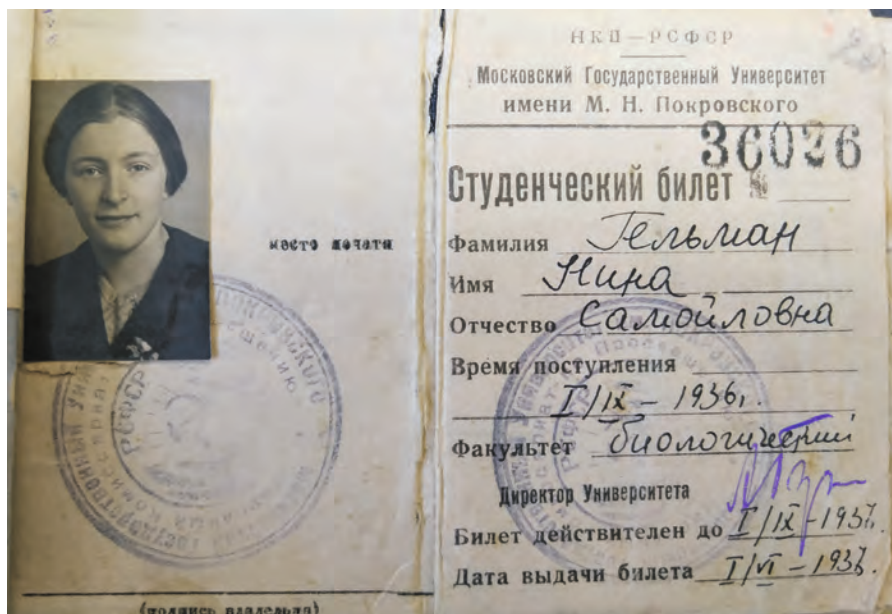 место печати
(подпись владельца)
НКП — РСФСР
Московский Государственный Университет
имени М. Н. Покровского
36026
Студенческий билет №
Фамилия Гельман
Имя Нина
Отчество Самойловна
Время поступления
I/IX – 1936г.
Факультет биологический
Директор Университета
Билет действителен до I/IX – 1937г.
Дата выдачи билета I/VI – 1937г.